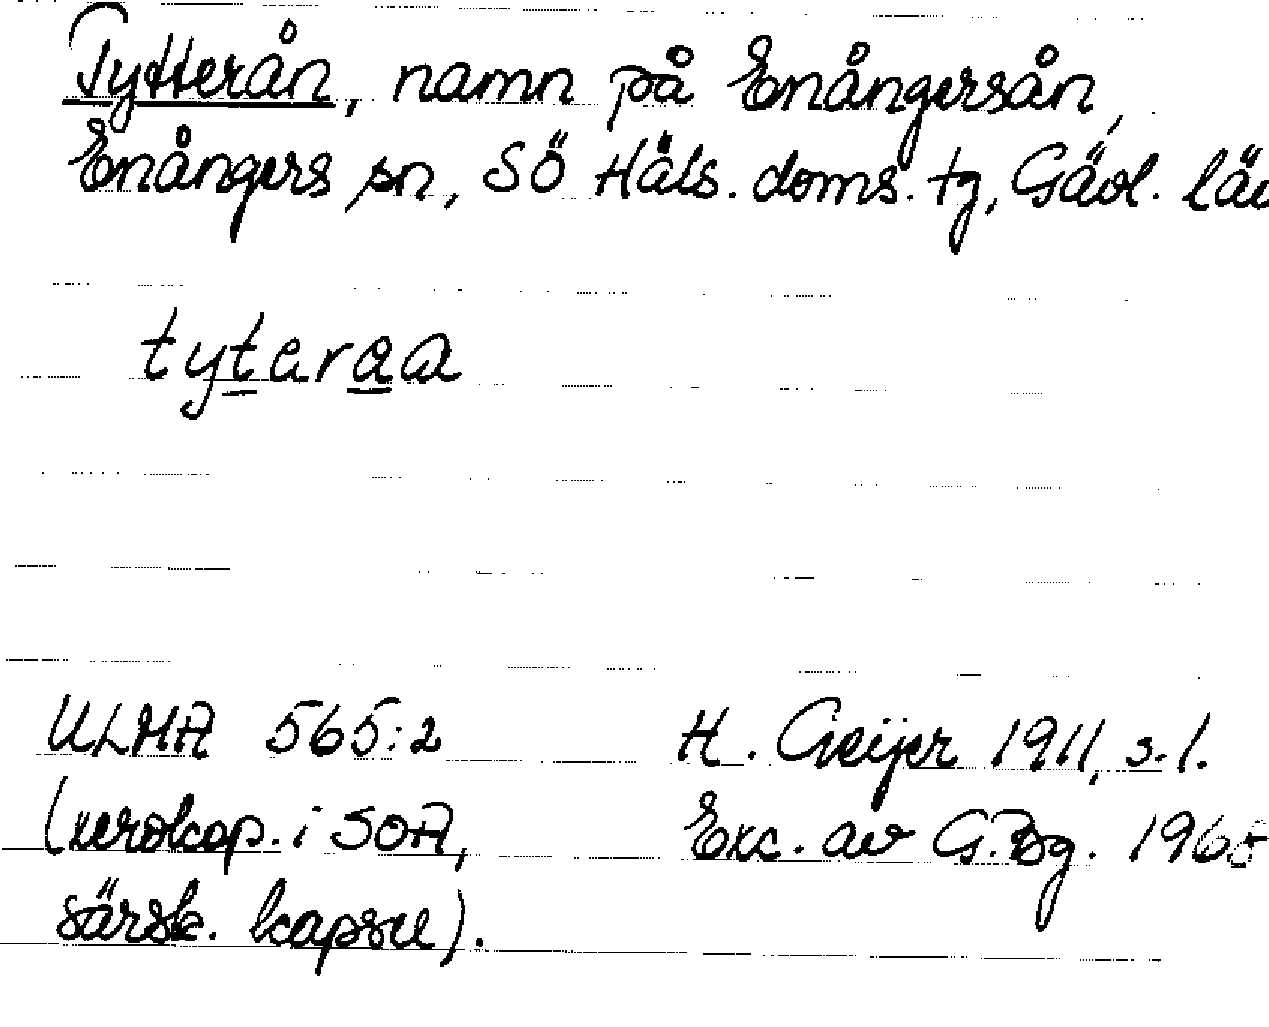 Tytterån, namn på Enångersån,
Enångers sn, SÖ Häls. doms. tg, Gävl. län
tytaraa
ULMA 565:2 H. Geijer 1911, s. 1.
(xerokop. i SOA, Exc. av G. Bg. 1965
särsk. kapsel).